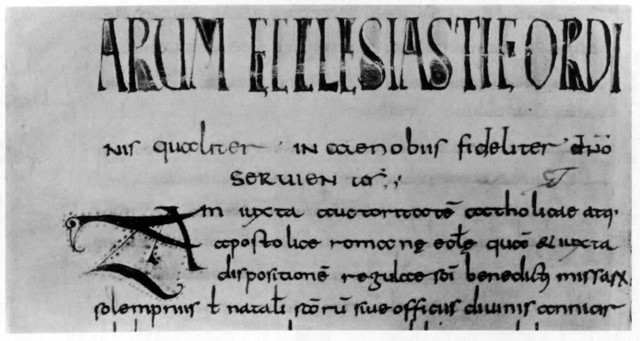 ARUM ECCLESIASTICI ORDI
nis qualiter · in caenobiis fideliter dn̄o
SERUIEN
am iuxta auctoritatē catholicae atq·
apostolice romanę eclē quā & iuxta
dispositionē regulae sc̄i benedic̄ missarū
solempniis ł natał sc̄orū siue officiis diuinis